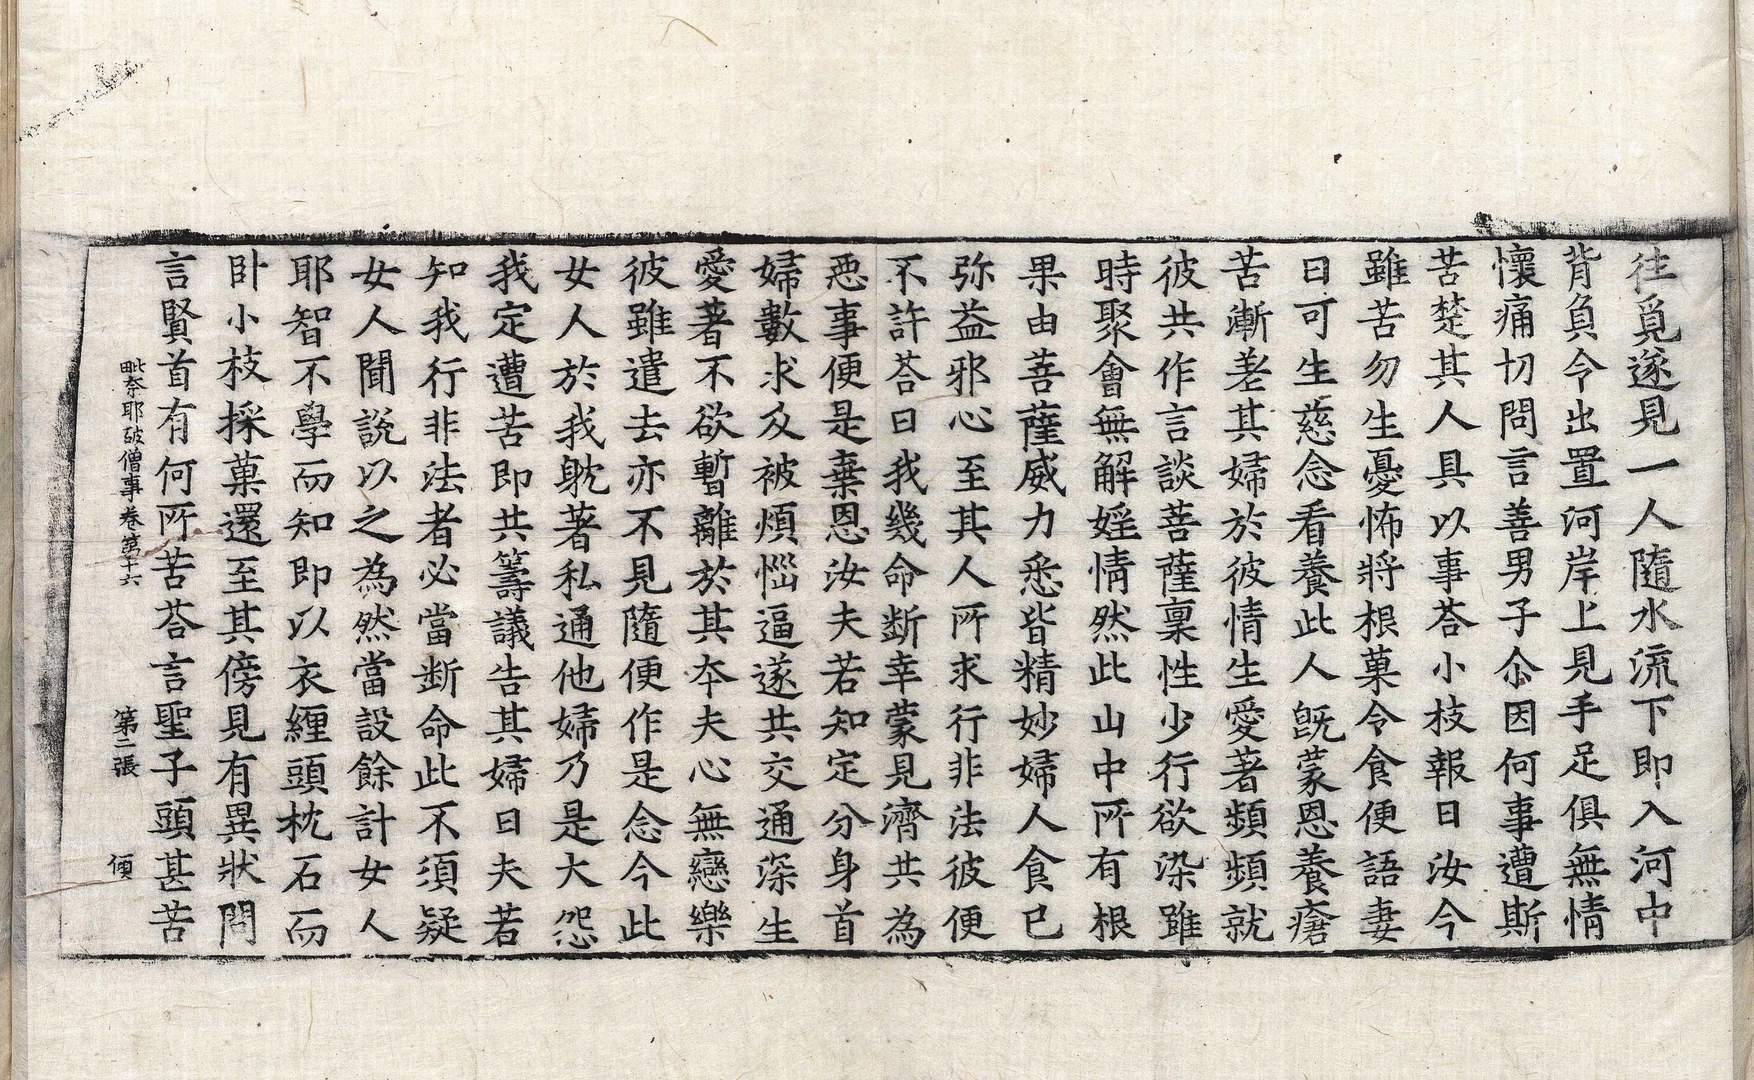 往覓遂見一人隨水流下即入河中
背負令出置河岸上見手足俱無情
懷痛切問言善男子尒因何事遭斯
苦楚其人具以事荅小枝報曰汝今
雖苦勿生憂怖將根菓令食便語妻
曰可生慈念看養此人旣蒙恩養瘡
苦漸差其婦於彼情生愛著頻頻就
彼共作言談菩薩稟性少行欲染雖
時聚會無解婬情然此山中所有根
果由菩薩威力悉皆精妙婦人食已
弥益邪心至其人所求行非法彼便
不許荅曰我幾命斷幸蒙見濟共為
惡事便是棄恩汝夫若知定分身首
婦數求及被煩惱逼遂共交通深生
愛著不欲暫離於其夲夫心無戀樂
彼雖遣去亦不見隨便作是念今此
女人於我躭著私通他婦乃是大怨
我定遭苦即共籌議告其婦曰夫若
知我行非法者必當斷命此不須疑
女人聞說以之為然當設餘計女人
耶智不學而知即以衣纏頭枕石而
卧小枝採菓還至其傍見有異狀問
言賢首有何所苦荅言聖子頭甚苦
毗奈耶破僧事卷第十六 第二張 傾